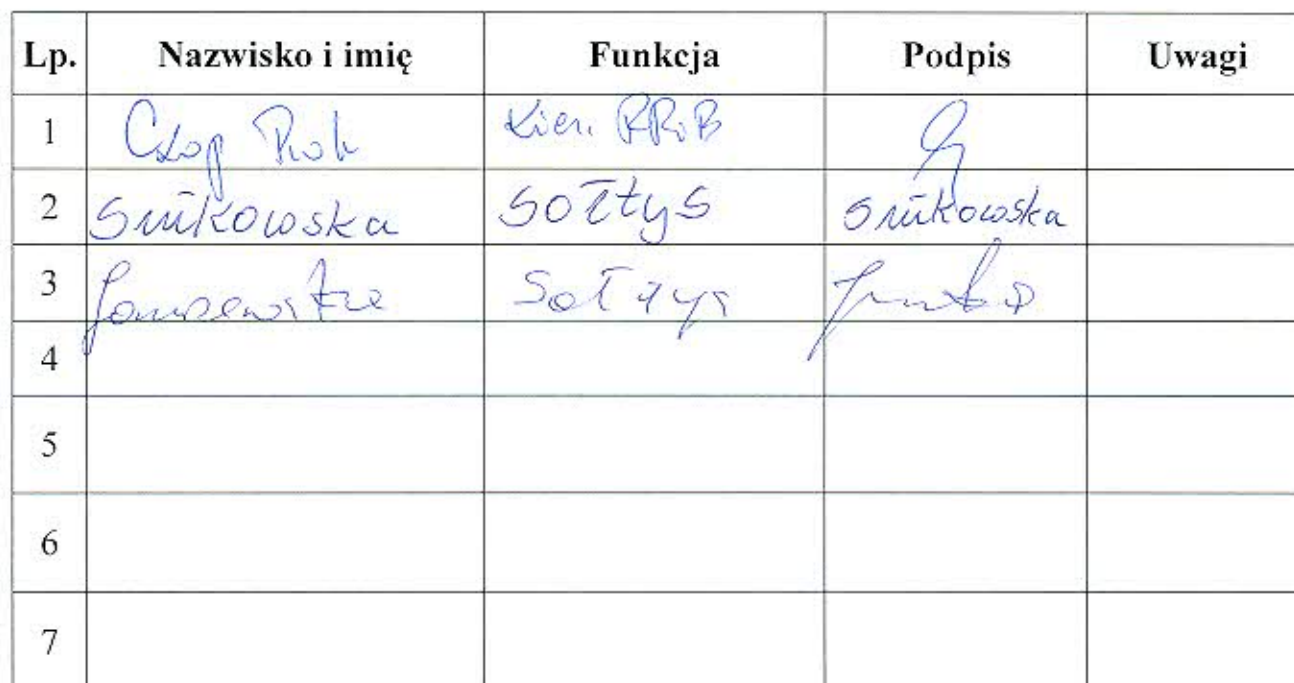 Lp. Nazwisko i imię Funkcja Podpis Uwagi
1 Kier. RRiB
2 Smikowska Sołtys Smikowska
3 Sołtys
4
5
6
7